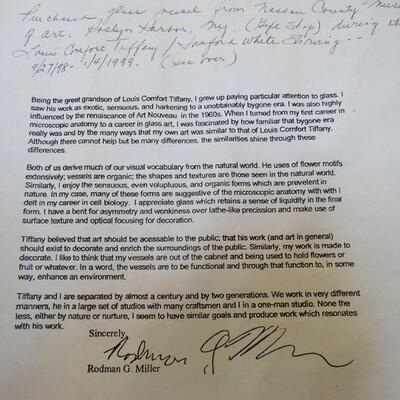 Purchased glass vessel from Nassau County Museum
of Art, Roslyn Harbor, N.Y. (Gift Shop) during the
Louis Comfort Tiffany / Stanford White Showing --
9/27/98 - 1/4/1999. (see over)
Being the great grandson of Louis Comfort Tiffany, I grew up paying particular attention to glass. I
saw his work as exotic, sensuous, and harkening to a unobtainably bygone era. I was also highly
influenced by the renaissance of Art Nouveau in the 1960s. When I turned from my first career in
microscopic anatomy to a career in glass art, I was fascinated by how familiar that bygone era
really was and by the many ways that my own art was similar to that of Louis Comfort Tiffany.
Although there cannot help but be many differences, the similarities shine through these
differences.
Both of us derive much of our visual vocabulary from the natural world. He uses of flower motifs
extensively; vessels are organic; the shapes and textures are those seen in the natural world.
Similarly, I enjoy the sensuous, even voluptuous, and organic forms which are prevelent in
nature. In my case, many of these forms are suggestive of the microscopic anatomy with with I
delt in my career in cell biology. I appreciate glass which retains a sense of liquidity in the final
form. I have a bent for asymmetry and wonkiness over lathe-like precission and make use of
surface texture and optical focusing for decoration.
Tiffany believed that art should be acessable to the public; that his work (and art in general)
should exist to decorate and enrich the surroundings of the public. Similarly, my work is made to
decorate. I like to think that my vessels are out of the cabnet and being used to hold flowers or
fruit or whatever. In a word, the vessels are to be functional and through that function to, in some
way, enhance an environment.
Tiffany and I are separated by almost a century and by two generations. We work in very different
manners, he in a large set of studios with many craftsmen and I in a one-man studio. None the
less, either by nature or nurture, I seem to have similar goals and produce work which resonates
with his work.
Sincerely,
Rodman G Miller
Rodman G. Miller